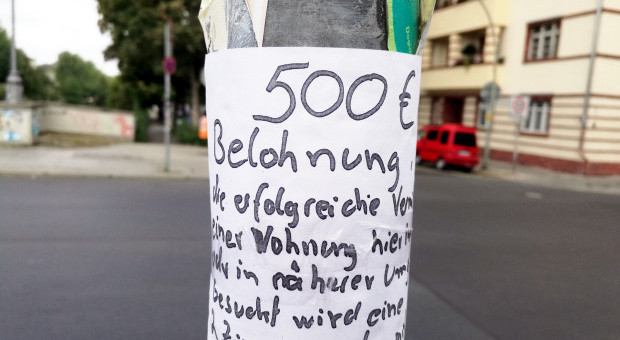 500 €
Belohnung
die erfolgreiche
einer Wohnung hier
oder in näherer
Gesucht wird eine
2